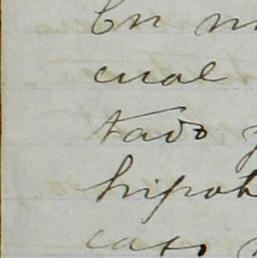 En
cual
tado
hipot
caso